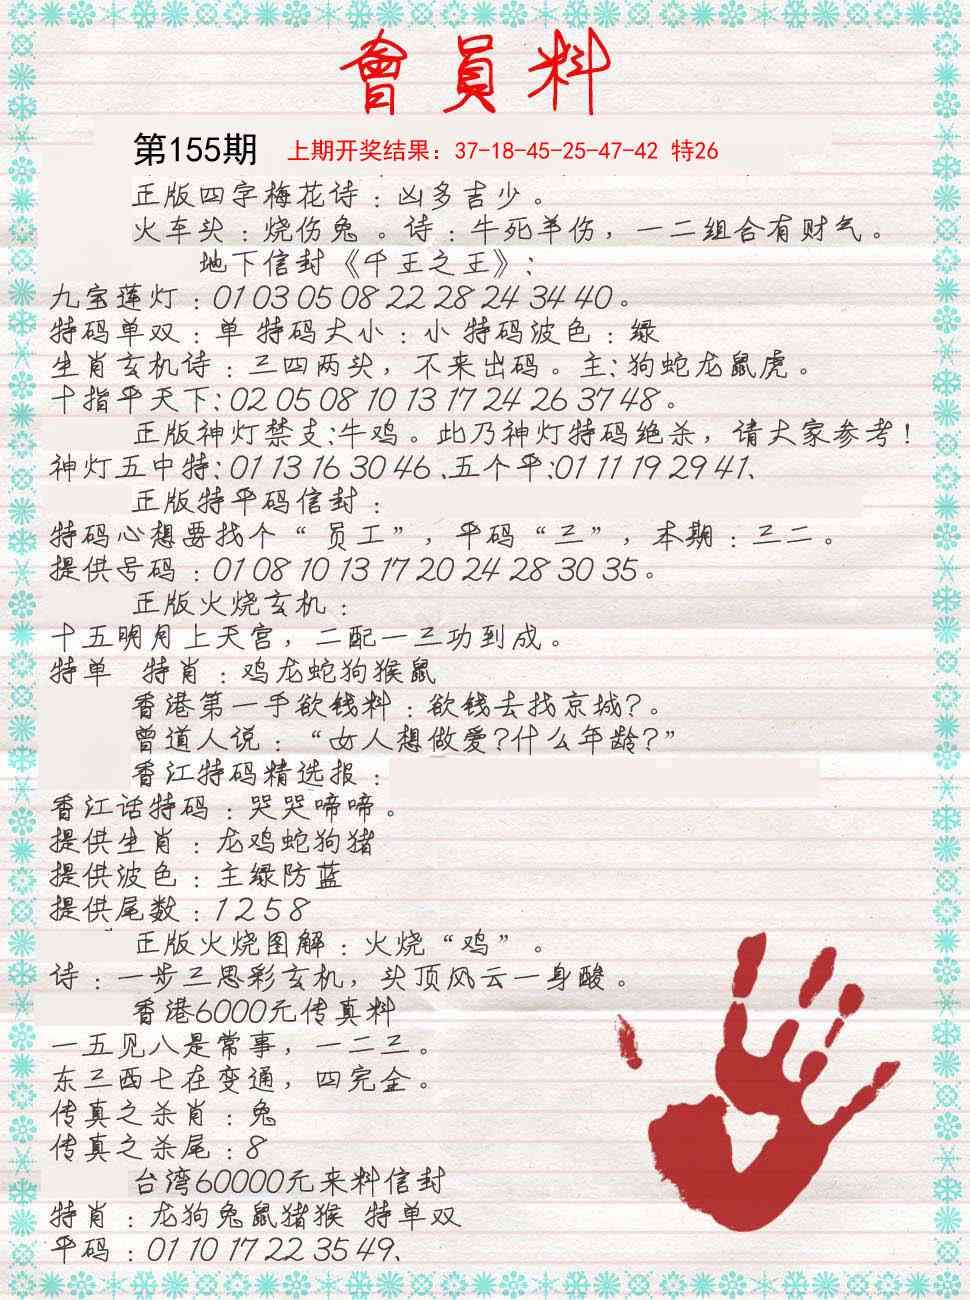 會員料
第155期 上期开奖结果：37-18-45-25-47-42 特26
正版四字梅花诗：凶多吉少。
火车头：烧伤兔。诗：牛死羊伤，一二组合有财气。
地下信封《千王之王》：
九宝莲灯：01 03 05 08 22 28 24 34 40。
特码单双：单 特码大小：小 特码波色：绿
生肖玄机诗：三四两头，不来出码。主：狗蛇龙鼠虎。
十指平天下：02 05 08 10 13 17 24 26 37 48。
正版神灯禁支：牛鸡。此乃神灯特码绝杀，请大家参考！
神灯五中特：01 13 16 30 46、五个平：01 11 19 29 41、
正版特平码信封：
特码心想要找个“员工”，平码“三”，本期：三二。
提供号码：01 08 10 13 17 20 24 28 30 35。
正版火烧玄机：
十五明月上天宫，二配一三功到成。
特单 特肖：鸡龙蛇狗猴鼠
香港第一手欲钱料：欲钱去找京城？。
曾道人说：“女人想做爱？什么年龄？”
香江特码精选报：
香江话特码：哭哭啼啼。
提供生肖：龙鸡蛇狗猪
提供波色：主绿防蓝
提供尾数：1 2 5 8
正版火烧图解：火烧“鸡”。
诗：一步三思彩玄机，头顶风云一身酸。
香港6000元传真料
一五见八是常事，一二三。
东三西七在变通，四完全。
传真之杀肖：兔
传真之杀尾：8
台湾60000元来料信封
特肖：龙狗兔鼠猪猴 特单双
平码：01 10 17 22 35 49、